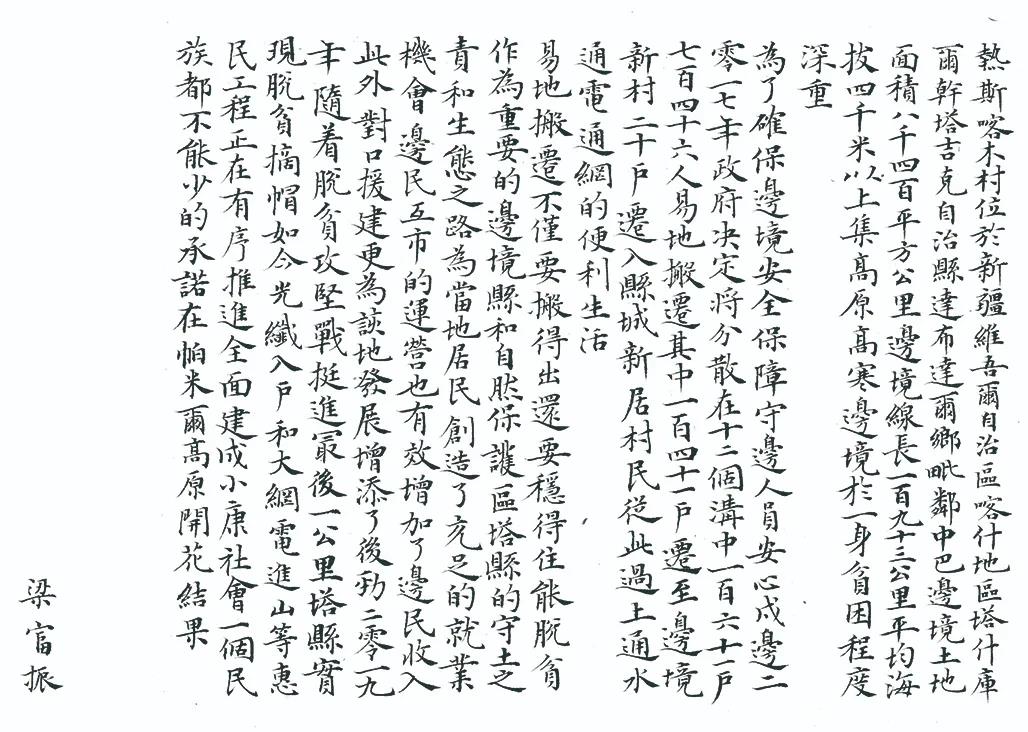 熱斯喀木村位於新疆維吾爾自治區喀什地區塔什庫
爾幹塔吉克自治縣達布達爾鄉毗鄰中巴邊境土地
面積八千四百平方公里邊境線長一百九十三公里平均海
拔四千米以上集高原高寒邊境於一身貧困程度
深重
為了確保邊境安全保障守邊人員安心戍邊二
零一七年政府决定将分散在十二個溝中一百六十一戶
七百四十六人易地搬遷其中一百四十一戶遷至邊境
新村二十戶遷入縣城新居村民從此過上通水
通電通網的便利生活
易地搬遷不僅要搬得出還要穩得住能脫貧
作為重要的邊境縣和自然保護區塔縣的守土之
責和生態之路為當地居民創造了充足的就業
機會邊民互市的運營也有效增加了邊民收入
此外對口援建更為該地發展增添了後勁二零一九
年隨着脫貧攻堅戰挺進最後一公里塔縣實
現脫貧摘帽如今光纖入戶和大網電進山等惠
民工程正在有序推進全面建成小康社會一個民
族都不能少的承諾在帕米爾高原開花結果
梁富振